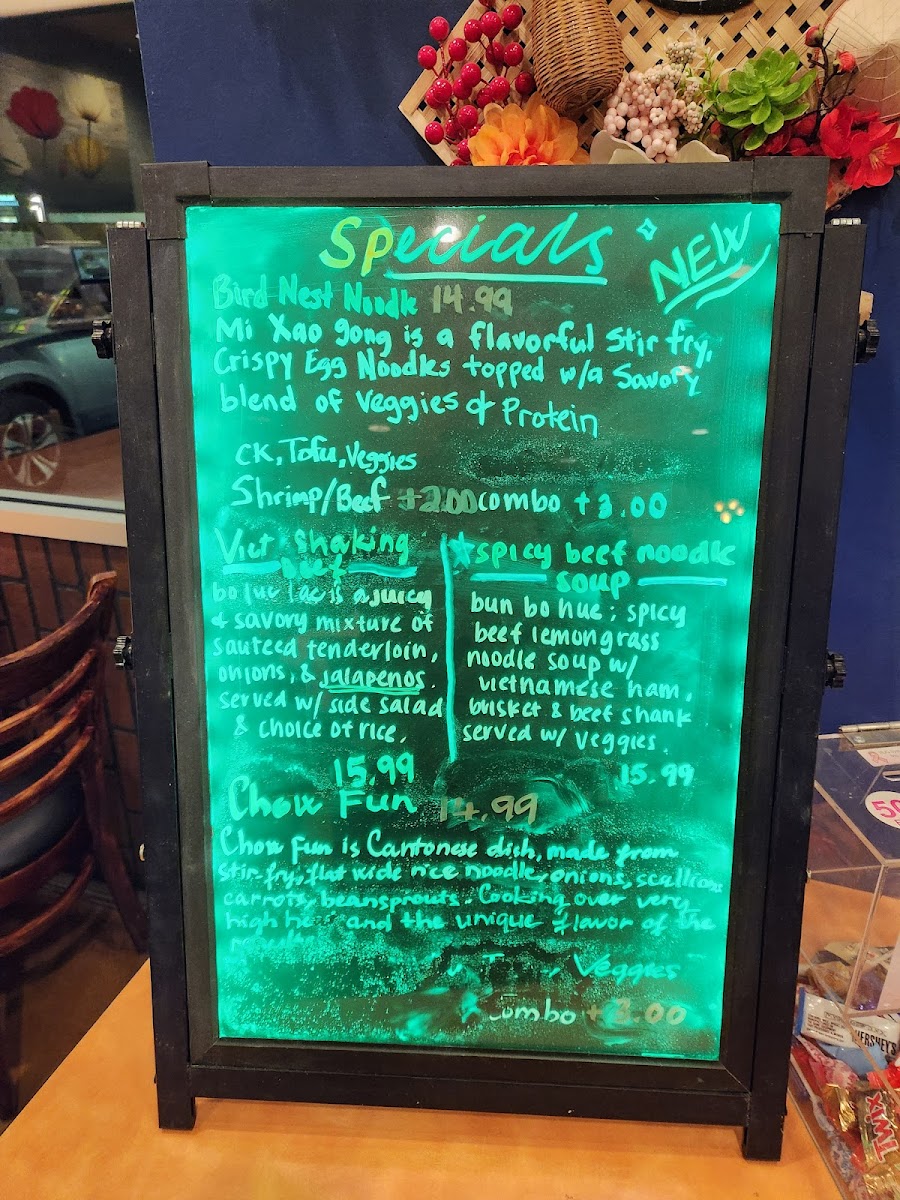 Specials
NEW
Bird Nest Noodle 14.99
Mi Xao gong is a flavorful Stir fry,
Crispy Egg Noodles topped w/a Savory
blend of veggies & Protein
CK, Tofu, Veggies
Shrimp/Beef +2.00 combo +3.00
Viet shaking
beef
bo luc lac is a juicy
& savory mixture of
sauteed tenderloin,
onions, & jalapenos.
served w/ side salad
& choice of rice.
15.99
spicy beef noodle
soup
bun bo hue; spicy
beef lemongrass
noodle soup w/
vietnamese ham,
brisket & beef shank
served w/ veggies.
15.99
Chow Fun 14.99
Chow fun is Cantonese dish, made from
stir-fry, flat wide rice noodle, onions, scallions
carrots, beansprouts. Cooking over very
high and the unique flavor of the
Veggies
combo +3.00
HERSHEY'S
TWIX
50